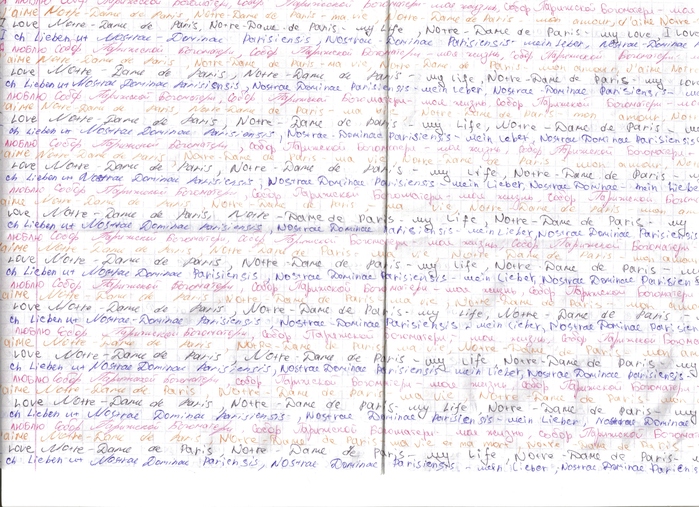 люблю Собор Парижской Богоматери, Собор Парижской Богоматери - моя жизнь, Собор Парижской Богоматери - моя
aime Notre-Dame de Paris, Notre-Dame de Paris - ma vie, Notre-Dame de Paris - mon amour, J'aime Notre
Love Notre-Dame de Paris, Notre-Dame de Paris - my Life, Notre-Dame de Paris - my love, I Love
ch Lieben ut Nostrae-Dominae Parisiensis, Nostrae-Dominae Parisiensis - mein Lieber, Nostrae-Dominae
люблю Собор Парижской Богоматери, Собор Парижской Богоматери - моя жизнь, Собор Парижской Богоматери
aime Notre-Dame de Paris, Notre-Dame de Paris - ma vie, Notre-Dame de Paris - mon amour, J'aime Notre
Love Notre-Dame de Paris, Notre-Dame de Paris - my Life, Notre-Dame de Paris - my Love
ch Lieben ut Nostrae Dominae Parisiensis, Nostrae Dominae Parisiensis - mein Lieber, Nostrae Dominae Parisiensis - mein
люблю Собор Парижской Богоматери, Собор Парижской Богоматери - моя жизнь, Собор Парижской Богоматери - моя
aime Notre-Dame de Paris, Notre-Dame de Paris - ma vie Notre-Dame de Paris - mon amour, Notre
Love Notre-Dame de Paris, Notre-Dame de Paris - my Life, Notre-Dame de Paris - my
ch Lieben ut Nostrae Dominae Parisiensis, Nostrae Dominae Parisiensis - mein Lieber, Nostrae Dominae Parisiensis
люблю Собор Парижской Богоматери, Собор Парижской Богоматери - моя жизнь, Собор Парижской Богоматери
aime Notre-Dame de Paris, Notre-Dame de Paris - ma vie Notre-Dame de Paris - mon amour
Love Notre-Dame de Paris, Notre-Dame de Paris - my Life, Notre-Dame de Paris - my
ch Lieben ut Nostrae Dominae Parisiensis, Nostrae Dominae Parisiensis - mein Lieber, Nostrae Dominae - mein Lieben
люблю Собор Парижской Богоматери, Собор Парижской Богоматери - моя жизнь, Собор Парижской Богоматери - моя
aime Notre-Dame de Paris, Notre-Dame de Paris - ma vie Notre-Dame de Paris - mon
Love Notre-Dame de Paris, Notre-Dame de Paris - my Life, Notre-Dame de Paris - my
ch Lieben ut Nostrae Dominae Parisiensis, Nostrae Dominae Parisiensis - mein Lieber, Nostrae Dominae Parisiensis
люблю Собор Парижской Богоматери, Собор Парижской Богоматери - моя жизнь, Собор Парижской Богоматери
aime Notre-Dame de Paris, Notre-Dame de Paris - ma vie Notre-Dame de Paris - mon amour
Love Notre-Dame de Paris, Notre-Dame de Paris - my Life, Notre-Dame de Paris - my
ch Lieben ut Nostrae Dominae Parisiensis, Nostrae Dominae Parisiensis - mein Lieber, Nostrae Dominae Parisien
люблю Собор Парижской Богоматери, Собор Парижской Богоматери - моя жизнь Собор Парижской Богоматери
aime Notre-Dame de Paris, Notre-Dame de Paris - ma vie Notre-Dame de Paris - mon
Love Notre-Dame de Paris, Notre-Dame de Paris - my Life, Notre-Dame de Paris - my
ch Lieben ut Nostrae-Dominae Parisiensis, Nostrae-Dominae Parisiensis - mein Lieber, Nostrae Dominae Parisien
люблю Собор Парижской Богоматери, Собор Парижской Богоматери, - моя жизнь, Собор Парижской Богоматери
aime Notre Dame de Paris, Notre-Dame de Paris - ma vie Notre-Dame de Paris - mon
Love Notre-Dame de Paris, Notre-Dame de Paris - my Life Notre-Dame de Paris - my
ch Lieben ut Nostrae Dominae Parisiensis, Nostrae Dominae Parisiensis - mein Lieber, Nostrae Dominae Parisiensis
люблю Собор Парижской Богоматери, Собор Парижской Богоматери - моя жизнь, Собор Парижской Богоматери
aime Notre-Dame de Paris Notre-Dame de Paris - ma vie Notre-Dame de Paris
Love Notre-Dame de Paris, Notre-Dame de Paris - my Life, Notre-Dame de Paris - my
ch Lieben ut Nostrae Dominae Parisiensis, Nostrae Dominae Parisiensis - mein Lieber, Nostrae Dominae
люблю Собор Парижской Богоматери, Собор Парижской Богоматери - моя жизнь, Собор Парижской Богоматери
aime Notre-Dame de Paris Notre-Dame de Paris - ma vie Notre-Dame de Paris - mon
Love Notre-Dame de Paris, Notre-Dame de Paris - my Life, Notre-Dame de Paris - my
ch Lieben ut Nostrae Dominae Parisiensis, Nostrae Dominae Parisiensis - mein Lieber, Nostrae Dominae Parisiensis